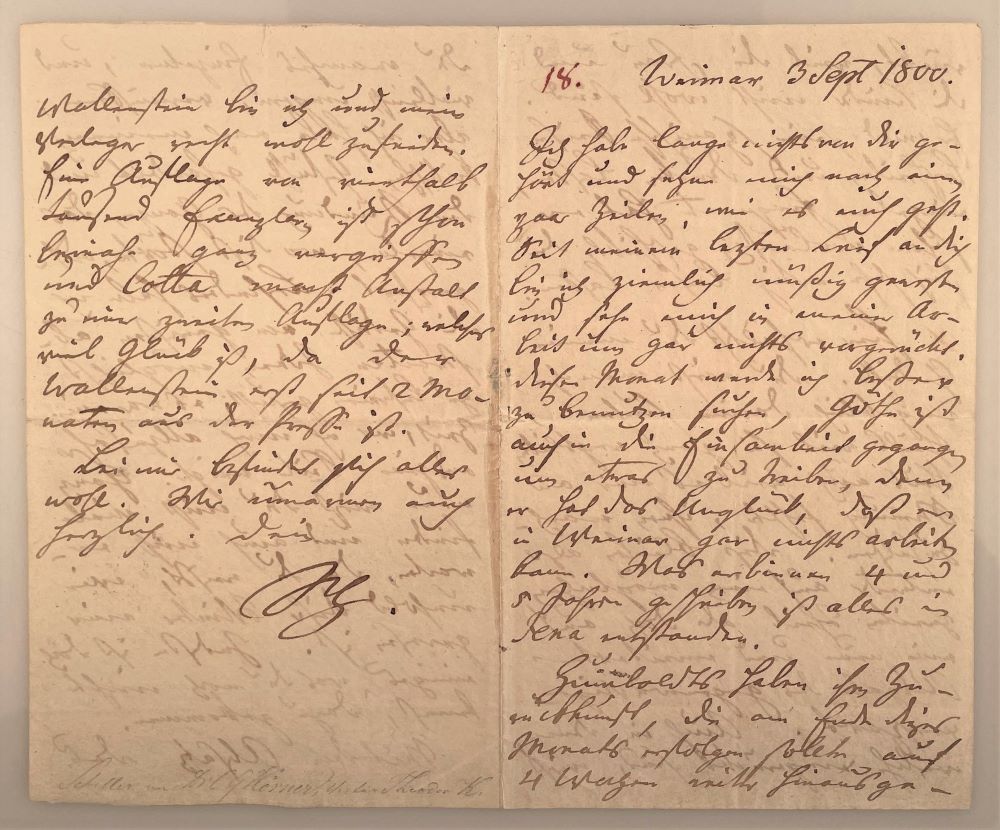 18. Weimar 3 Sept 1800.
Ich habe lange nichts von dir ge-
hört und sehne mich nach einen
paar Zeilen, wie es euch geht.
Seit meinem lezten Brief an dich
bin ich ziemlich müßig gewesen
und sehe mich in meiner Ar-
beit um gar nichts vorgerückt.
diesen Monat werde ich besser
zu benutzen suchen, Göthe ist
auch in die Einsamkeit gegangen
um etwas zu treiben, denn
er hat das Unglück, daß er
in Weimar gar nichts arbeiten
kann. Was er binnen 4 und
5 Jahren geschrieben ist alles in
Jena entstanden.
Humboldts haben ihre Zu-
rückkunft, die am Ende dieses
Monats erfolgen sollte auf
4 Wochen weiter hinausge-
Wallenstein bin ich und mein
Verleger recht wohl zufrieden.
Eine Auflage von vierthalb
tausend Exemplaren ist schon
beinahe ganz vergriffen
und Cotta macht Anstalt
zu einer zweiten Auflage, welches
viel Glück ist, da der
Wallenstein erst seit 2 Mo-
naten aus der Presse ist.
Bei mir befindet sich alles
wohl. Wir umarmen euch
herzlich. Dein
Sch.
Schiller an Körner, Vater Theodor K.